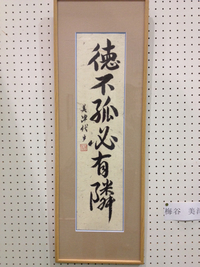 徳不孤必有隣
梅谷 美